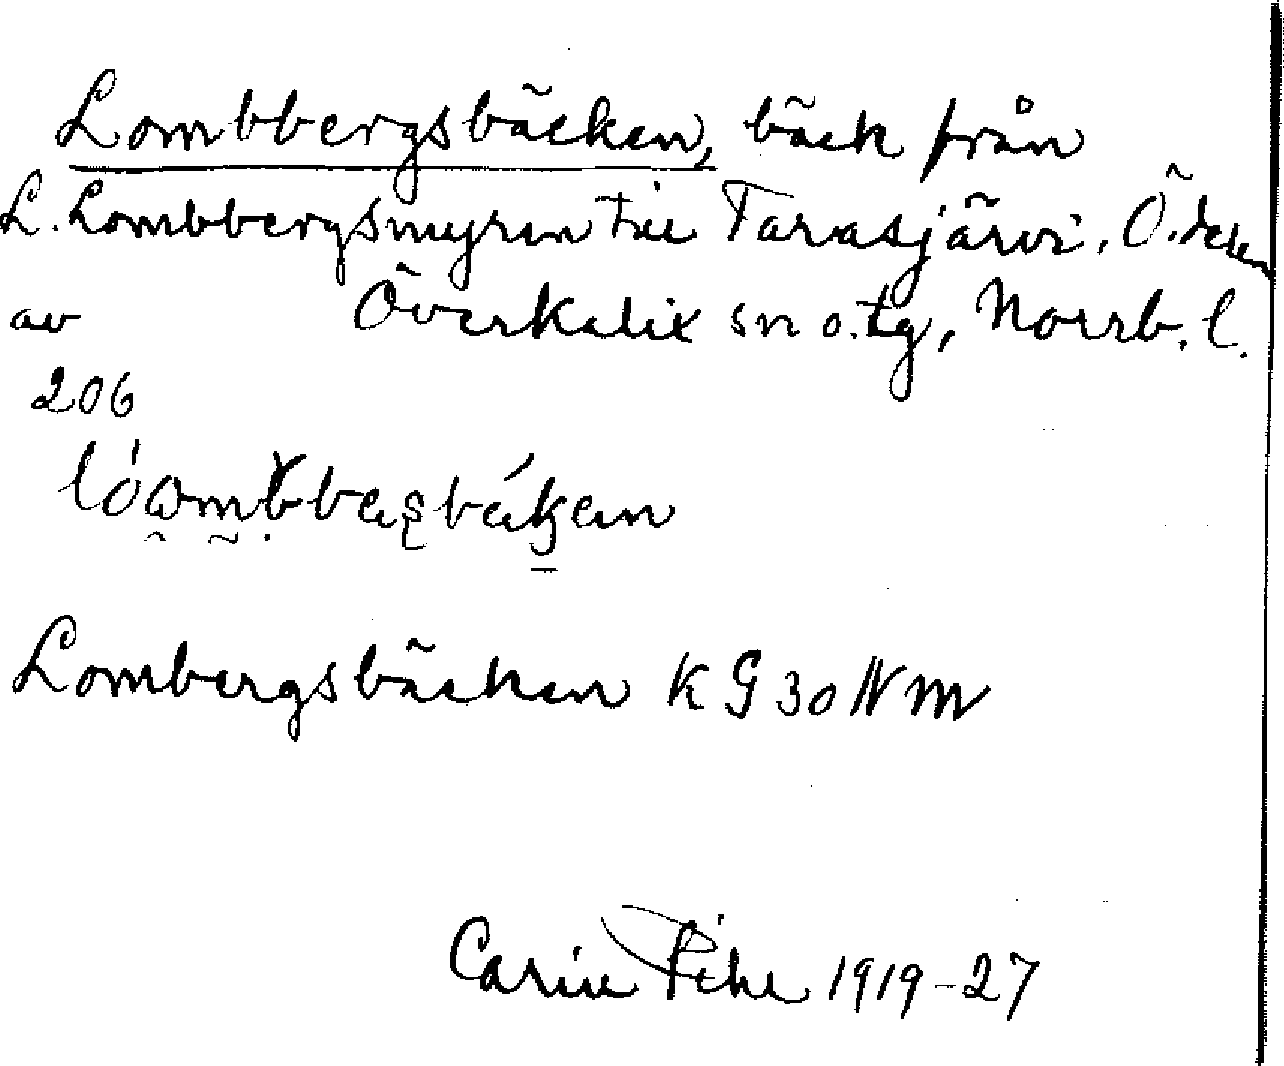 Lombbergsbäcken, bäck från
L. Lombbergsmyren till Tarasjärvi, Ö. delen
av Överkalix sn o. tg, Norrb. l.
206
Lombergsbäcken KG 30 NM
Carin Pihl 1919-27